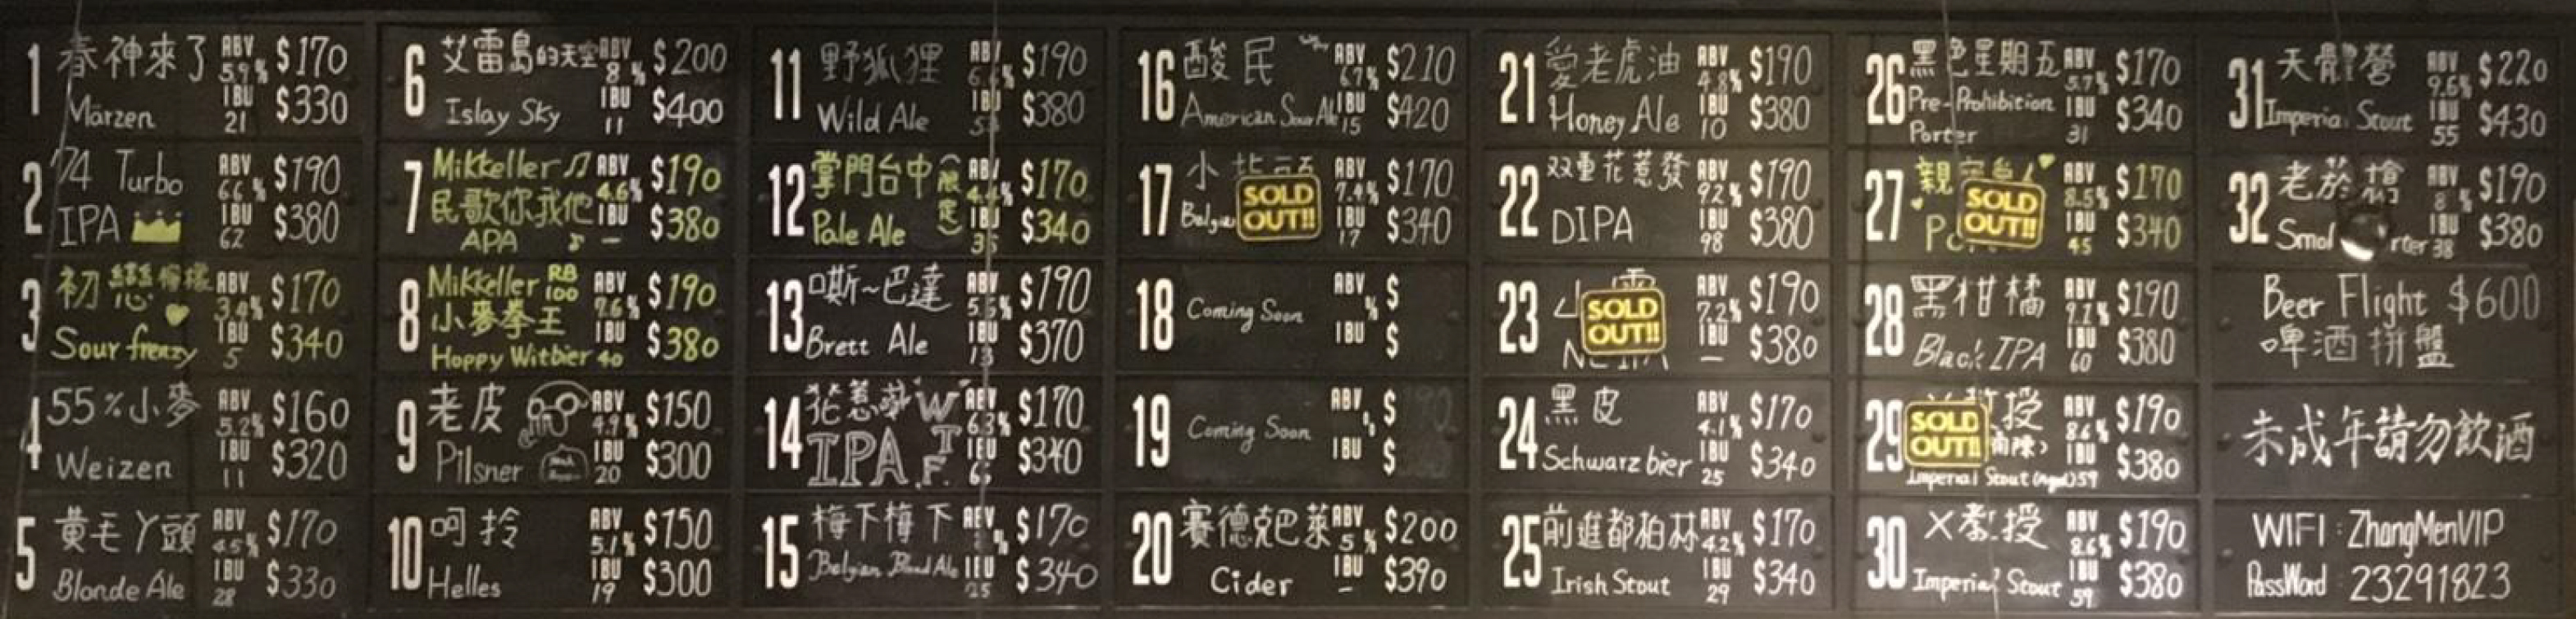 1 春神來了 ABV 5.9% $170
Märzen IBU 21 $330
2 '74 Turbo ABV 6.6% $190
IPA IBU 62 $380
3 初戀檸檬 ABV 3.4% $170
Sour frenzy IBU 5 $340
4 55%小麥 ABV 5.2% $160
Weizen IBU 11 $320
5 黃毛丫頭 ABV 4.5% $170
Blonde Ale IBU 28 $330
6 艾雷島的天空 ABV 8% $200
Islay Sky IBU 11 $400
7 Mikkeller ABV 4.6% $190
民歌你我他 IBU - $380
APA
8 Mikkeller RB 100 ABV 7.6% $190
小麥拳王 IBU 40 $380
Hoppy Witbier
9 老皮 ABV 4.9% $150
Pilsner IBU 20 $300
10 呵拎 ABV 5.1% $150
Helles IBU 19 $300
11 野狐狸 ABV 6.6% $190
Wild Ale IBU $380
12 掌門台中(限定) ABV 4.4% $170
Pale Ale IBU 35 $340
13 口斯~巴達 ABV 5.5% $190
Brett Ale IBU 13 $370
14 花惹發 W ABV 6.3% $170
IPA T.F. IBU $340
15 梅下梅下 ABV % $170
Belgian Blond Ale IBU 25 $340
16 酸民 ABV 6.7% $210
American Sour Ale IBU 15 $420
17 小 ABV 7.4% $170
SOLD OUT!!
IBU 17 $340
18 Coming Soon ABV % $
IBU $
19 Coming Soon ABV % $
IBU $
20 賽德克巴萊 ABV 5% $200
Cider IBU - $390
21 愛老虎油 ABV 4.8% $190
Honey Ale IBU 10 $380
22 双重花惹發 ABV 9.2% $190
DIPA IBU 98 $380
23 ABV 7.2% $190
SOLD OUT!!
IBU - $380
24 黑皮 ABV 4.1% $170
Schwarzbier IBU 25 $340
25 前進都柏林 ABV 4.2% $170
Irish Stout IBU 29 $340
26 黑色星期五 ABV 5.7% $170
Pre-Prohibition IBU 31 $340
Porter
27 親 ABV 8.5% $170
SOLD OUT!!
IBU 45 $340
28 黑柑橘 ABV 7.7% $190
Black IPA IBU 60 $380
29 教授 ABV 8.6% $190
SOLD OUT!!
Imperial Stout (Aged) IBU 59 $380
30 X教授 ABV 8.6% $190
Imperial Stout IBU 59 $380
31 天體營 ABV 9.6% $220
Imperial Stout IBU 55 $430
32 老菸槍 ABV 8% $190
IBU 38 $380
Beer Flight $600
啤酒拼盤
未成年請勿飲酒
WIFI : ZhangMenVIP
PassWord : 23291823